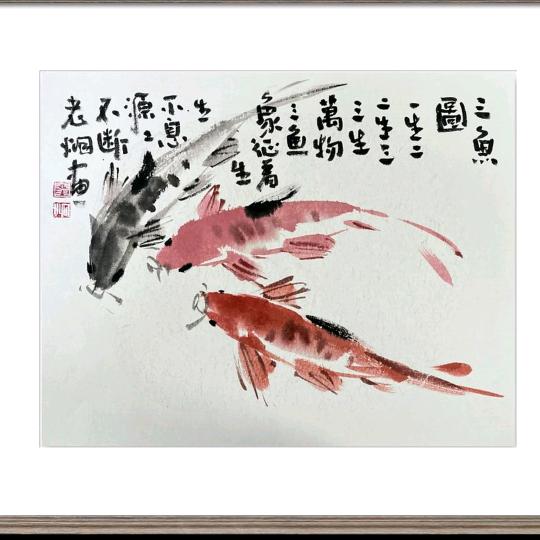 三魚
圖
一生二
二生三
三生
萬物
三魚
象征着
生
生
不息
源源
不断
老烟画